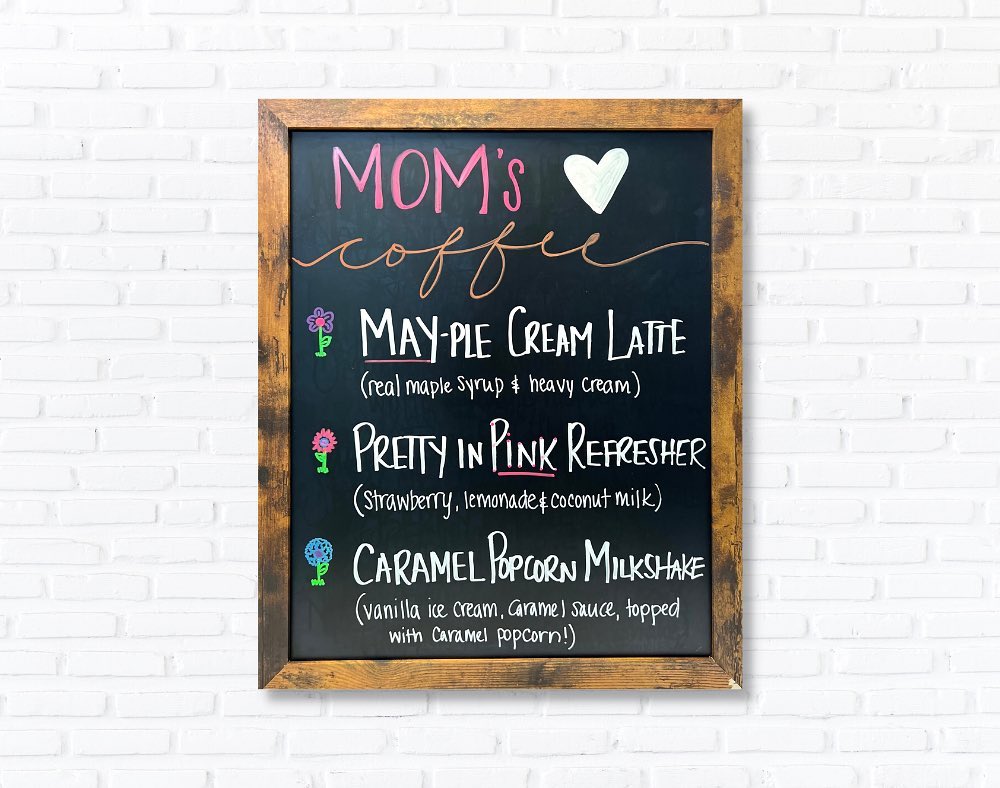 MOM'S
coffee
MAY-PLE CREAM LATTE
(real maple syrup & heavy cream)
PRETTY IN PINK REFRESHER
(strawberry, lemonade & coconut milk)
CARAMEL POPCORN MILKSHAKE
(vanilla ice cream, caramel sauce, topped
with caramel popcorn!)